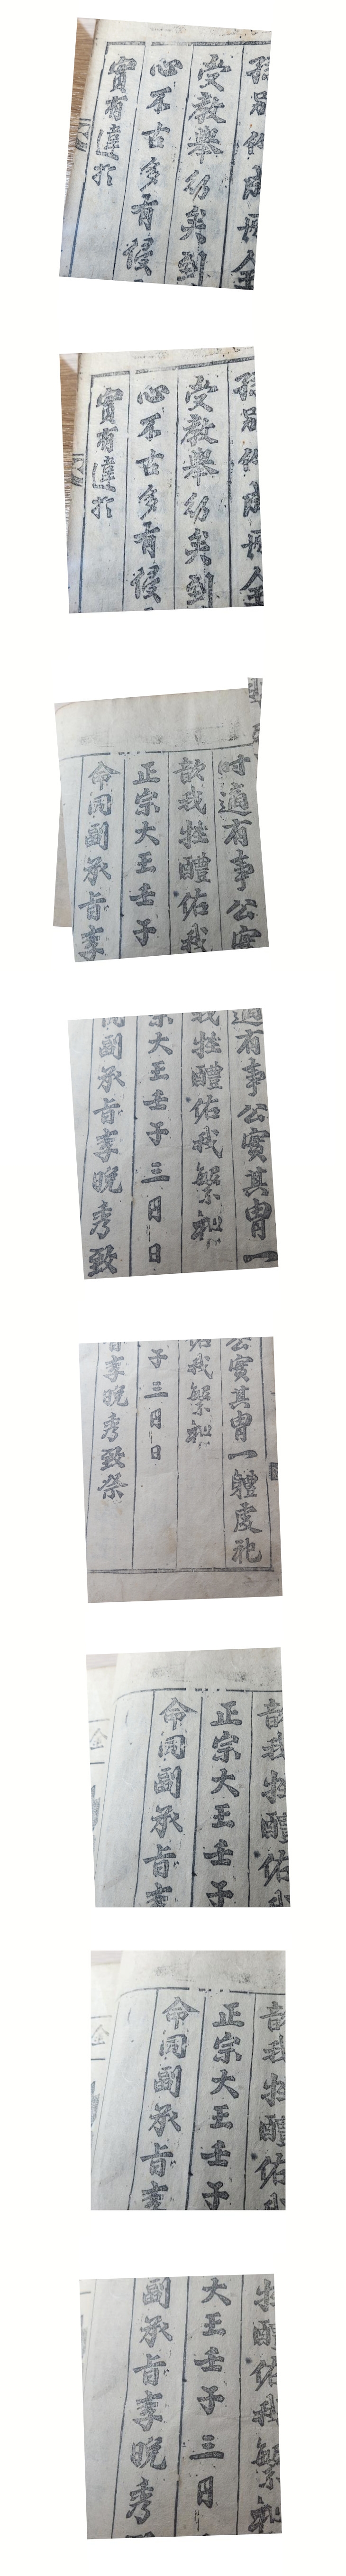 受教舉行矣到
心不古多有侵
實有違於
受教舉行矣到
心不古多有侵
實有違於
時適有事公實
歆我牲醴佑我
正宗大王壬子
命同副承旨李
適有事公實其冑一
我牲醴佑我繁祉
宗大王壬子三月日
同副承旨李晩秀致
公實其冑一體虔祀
佑我繁祉
子三月日
旨李晩秀致祭
歆我牲醴佑
正宗大王壬子
命同副承旨李
歆我牲醴佑
正宗大王壬子
命同副承旨李
牲醴佑我繁祉
大王壬子三月
副承旨李晩秀